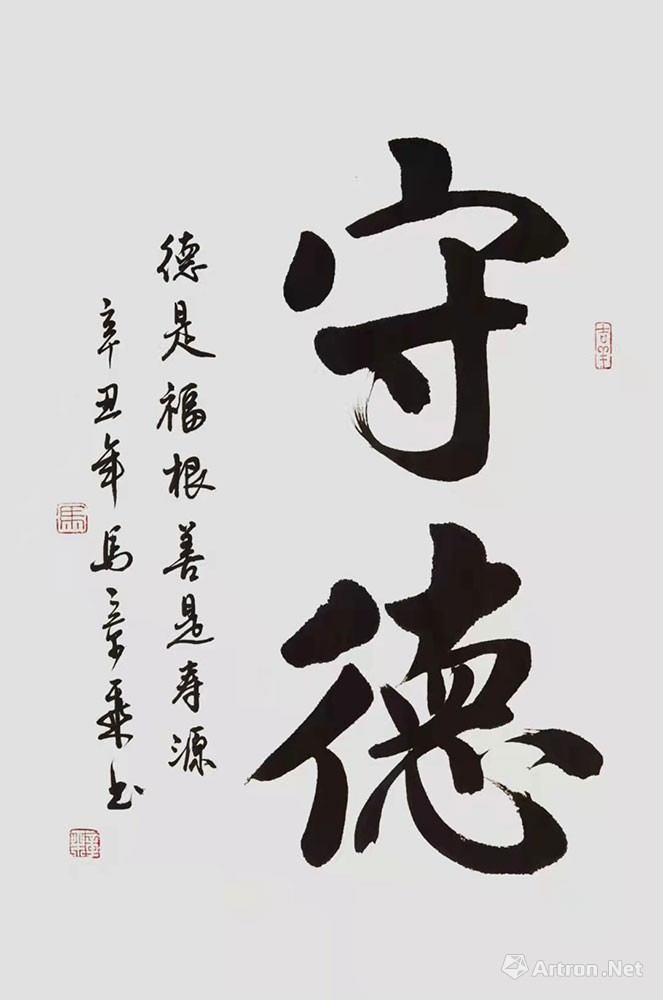 守德
德是福根善是寿源
辛丑年马章乘书
马
Artron.Net